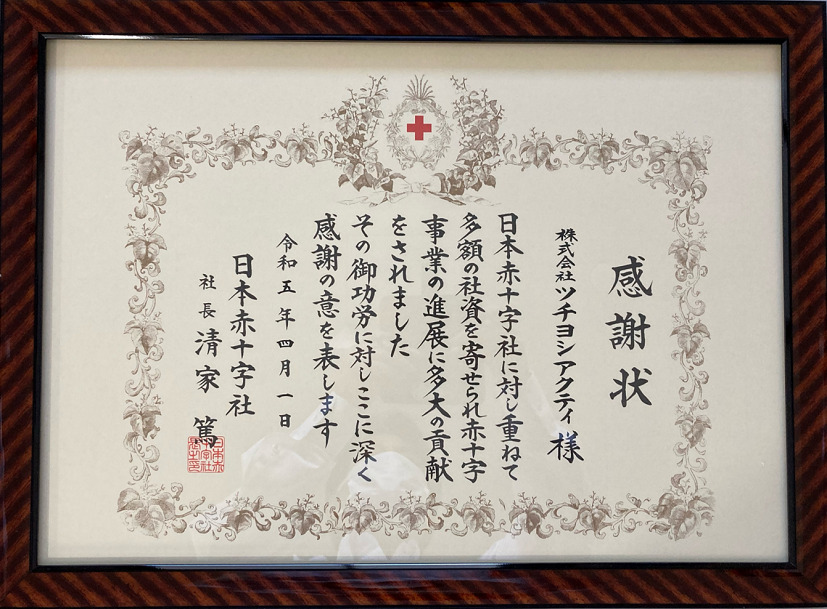 感謝状
株式会社ツチヨシアクティ 様
日本赤十字社に対し重ねて
多額の社資を寄せられ赤十字
事業の進展に多大の貢献
をされました
その御功労に対しここに深く
感謝の意を表します
令和五年四月一日
日本赤十字社
社長 清家 篤